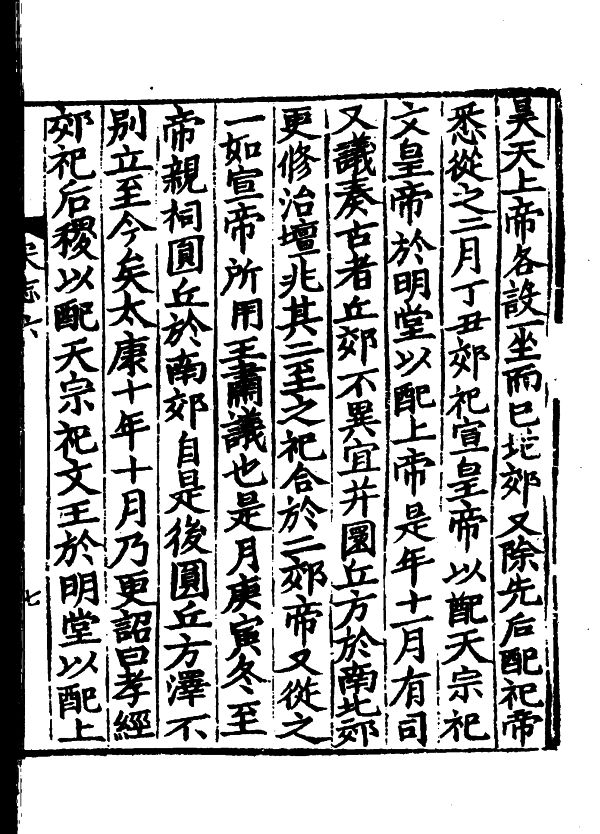 昊天上帝各設一坐而已地郊又除先后配祀帝
悉從之二月丁丑郊祀宣皇帝以配天宗祀
文皇帝於明堂以配上帝是年十一月有司
又議奏古者丘郊不異宜并圓丘方於南北郊
更修治壇兆其二至之祀合於二郊帝又從之
一如宣帝所用王肅議也是月庚寅冬至
帝親祠圓丘於南郊自是後圓丘方澤不
別立至今矣太康十年十月乃更詔曰孝經
郊祀后稷以配天宗祀文王於明堂以配上
志六
七